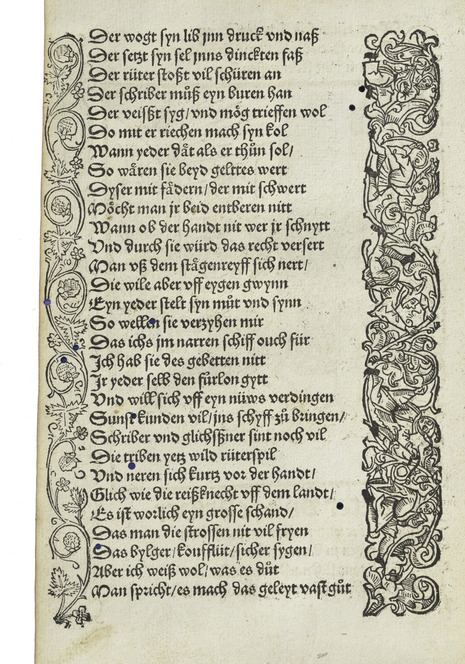 Der wogt syn lib jnn druck vnd naß
Der setzt syn sel jnns dinckten faß
Der rüter stoßt vil schüren an
Der schriber můß eyn buren han
Der veißt syg / vnd mög trieffen wol
Do mit er riechen mach syn kol
Wann yeder dăt als er thůn sol /
So wăren sie beyd gelttes wert
Dyser mit fădern / der mit schwert
Möcht man jr beid entberen nitt
Wann ob der handt nit wer jr schnytt
Vnd durch sie würd das recht versert
Man vß dem stăgenreyff sich nert /
Die wile aber vff eygen gwynn
Eyn yeder stelt syn můt vnd synn
So wellen sie verzyhen mir
Das ichs jm narren schiff ouch für
Jch hab sie des gebetten nitt
Jr yeder selb den fůrlon gytt
Vnd will sich vff eyn nüws verdingen
Sunst kunden vil / jns schyff zů bringen /
Schriber vnd glichsßner sint noch vil
Die triben yetz wild rüterspil
Vnd neren sich kurtz vor der handt /
Glich wie die reißknecht vff dem landt /
Es ist worlich eyn grosse schand /
Das man die strossen nit vil fryen
Das bylger / koufflüt / sicher sygen /
Aber ich weiß wol / was es düt
Man spricht / es mach das geleyt vast gůt